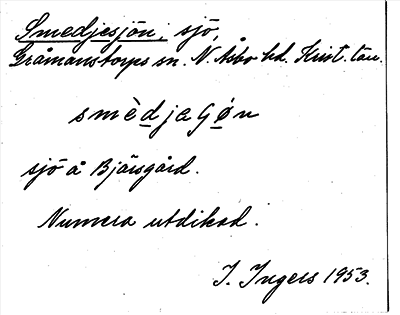 Smedjesjön, sjö,
Gråmanstorps sn. N. Åsbo hd. Krist. län.
smèdjaʃøn
sjö å Bjärsgård.
Numera utdikad.
I. Ingers 1953.